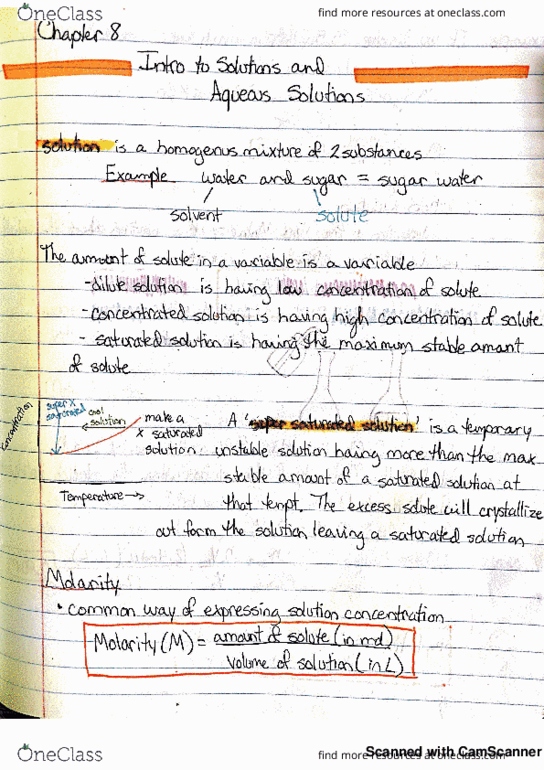 OneClass
find more resources at oneclass.com
Chapter 8
Intro to Solutions and
Aqueous Solutions
solution is a homogenus mixture of 2 substances
Example water and sugar = sugar water
solvent solute
The amount of solute in a variable is a variable
-dilute solution is having low concentration of solute
-concentrated solution is having high concentration of solute
- saturated solution is having the maximum stable amant
of solute
concentration
super x
saturated
cool
solution
make a
x saturated
solution
Temperature →
A 'super saturated solution' is a temporary
unstable solution having more than the max
stable amount of a saturated solution at
that tempt. The excess solute will crystallize
out form the solution leaving a saturated solution
Molarity
• common way of expressing solution concentration
Molarity (M) = amount of solute (in mol)
volume of solution (in L)
OneClass
find more resources at oneclass.com
Scanned with CamScanner